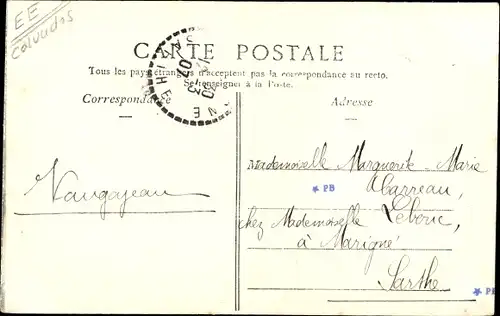 EE
Calvados
CARTE POSTALE
Tous les pays étrangers n'acceptent pas la correspondance au recto.
Se renseigner à la Poste.
Correspondance
Adresse
Mademoiselle Marguerite-Marie
* PB
Abarreau,
Vaugajeau
chez Mademoiselle Lebouc,
à Marigné
Sarthe